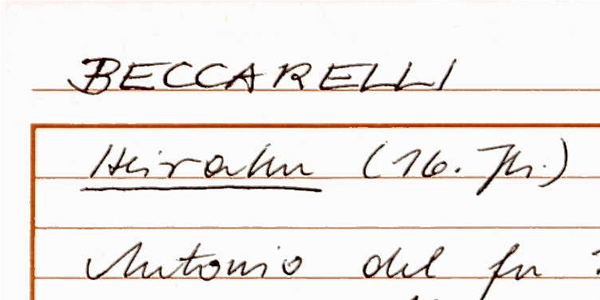 BECCARELLI
Heirahn (16. Jh.)
Antonio del fu